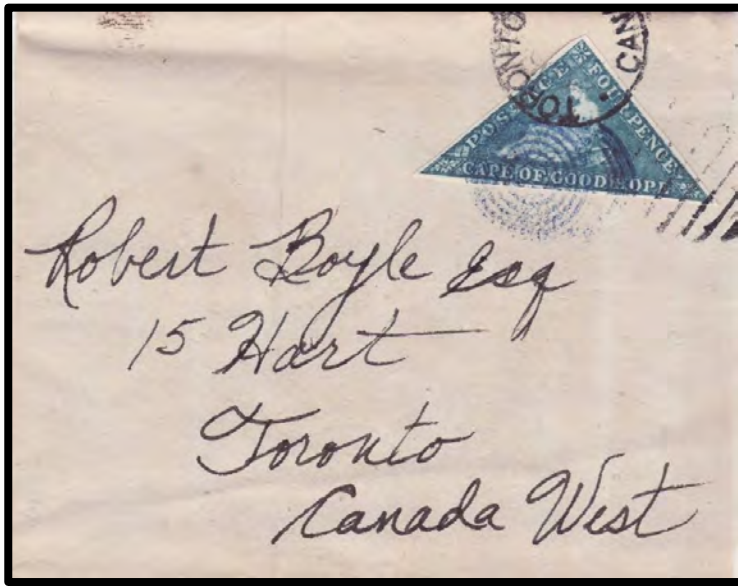 TORONTO
CAN
POSTAGE FOUR PENCE
CAPE OF GOOD HOPE
Robert Boyle Esq
15 Hart
Toronto
Canada West